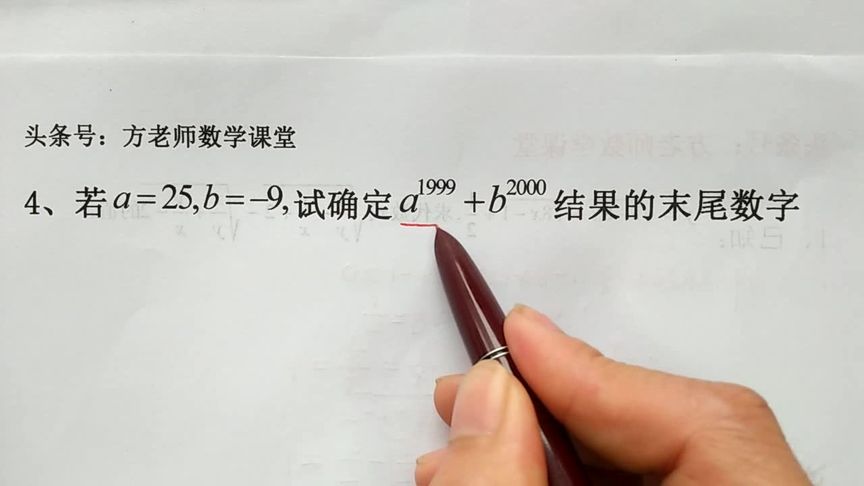 头条号：方老师数学课堂
4、若a=25,b=-9,试确定a¹⁹⁹⁹+b²⁰⁰⁰结果的末尾数字